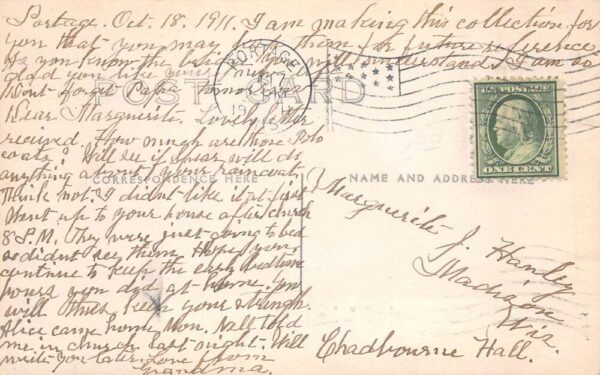 Portage. Oct. 18. 1911. I am making this collection for
you that you may have them for future reference.
As you know the you will understand. I am so
glad you like your
Dont forget Papa
POST CARD
PORTAGE
Dear Marguerite. Lovely letter
received. How much are those Polo
coats? Will see if Spear will do
anything about your raincoat.
Think not. I didnt like it at first
CORRESPONDENCE HERE
Went up to your house after church
8 P.M. They were just going to bed
so didnt see them. Hope you
continue to keep the early bedtime
hours you did at home. You
will thus keep your strength.
Alice came home Mon. Nall told
me in church last night. Will
write you later. Love from
Grandma.
U.S. POSTAGE
ONE CENT
NAME AND ADDRESS HERE
Marguerite J. Hanley
Madison
Wis.
Chadbourne Hall.